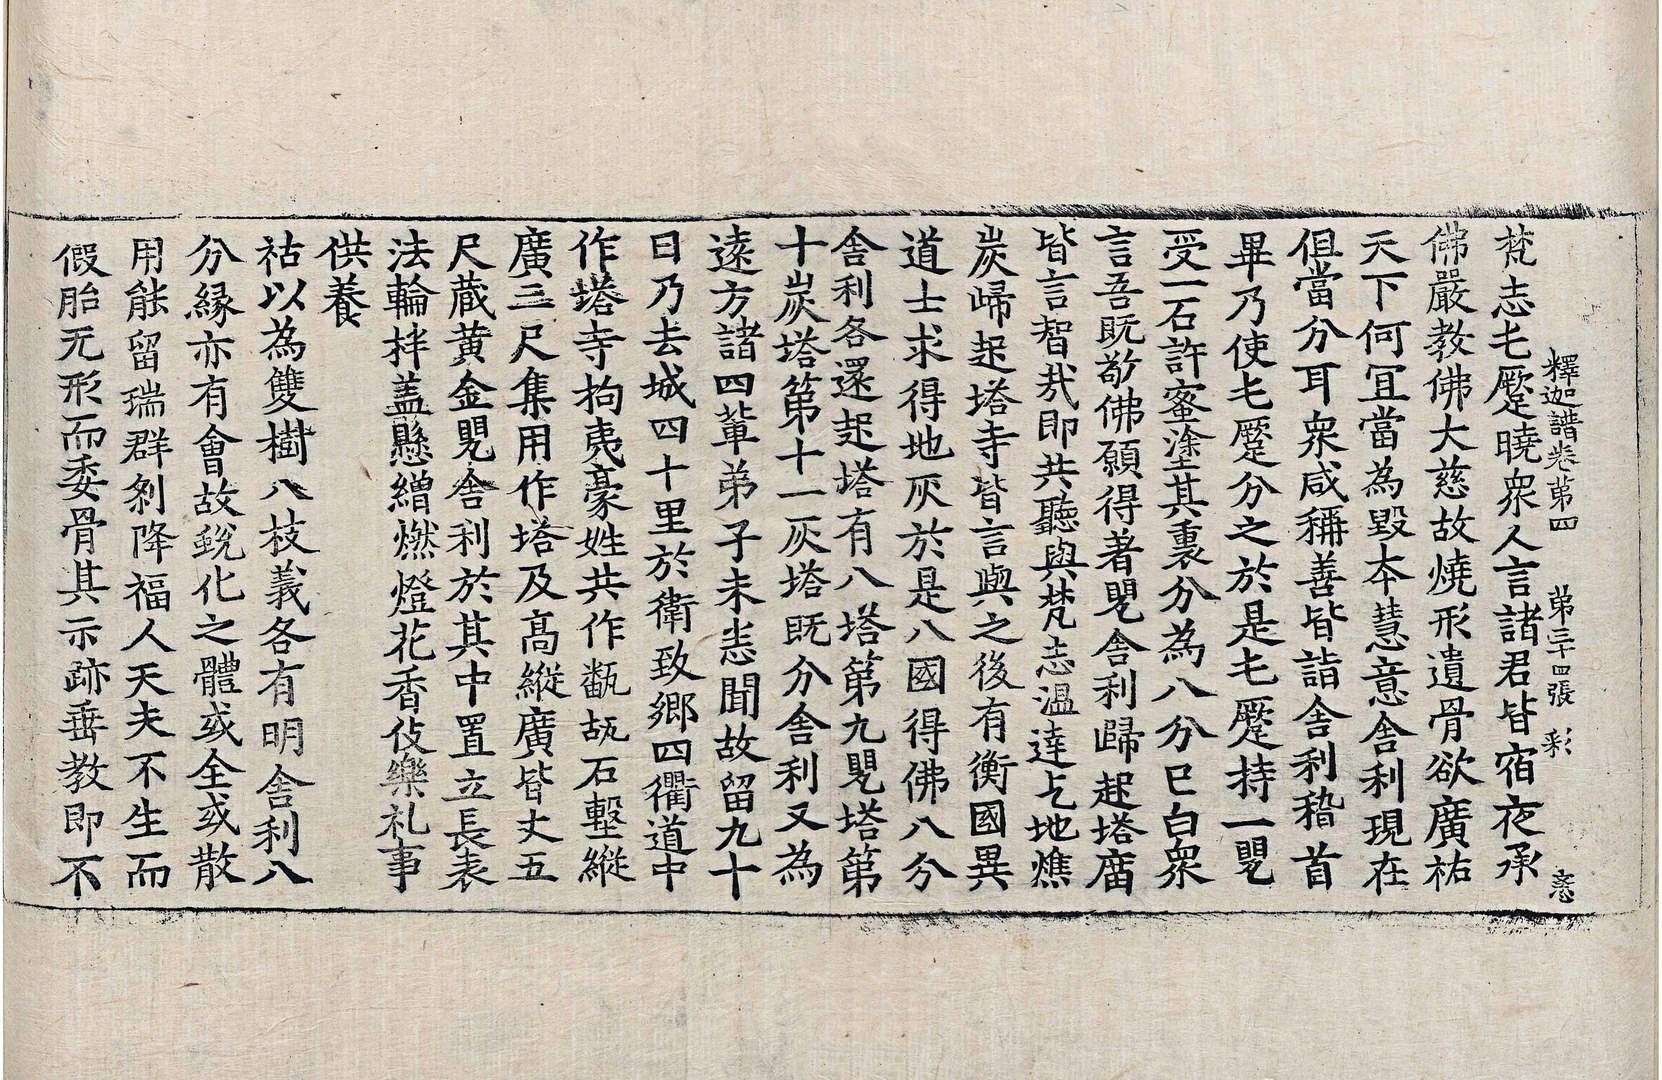 釋迦譜卷第四 第三十四張 彩
梵志毛蹷曉衆人言諸君皆宿夜承
佛嚴教佛大慈故燒形遺骨欲廣祐
天下何冝當為毀夲慧意舍利現在
但當分耳衆咸稱善皆詣舍利稽首
畢乃使毛蹷分之於是毛蹷持一甖
受一石許蜜塗其裏分為八分已白衆
言吾既敬佛願得著甖舍利歸起塔庿
皆言智哉即共聽與梵志温達乞地燋
炭歸起塔寺皆言與之後有衡國異
道士求得地灰於是八國得佛八分
舍利各還起塔有八塔第九甖塔第
十炭塔第十一灰塔既分舍利又為
遠方諸四輩弟子未悉聞故留九十
日乃去城四十里於衛致鄉四衢道中
作塔寺拘夷豪姓共作㽃瓳石墼縱
廣三尺集用作塔及高縱廣皆丈五
尺蔵黄金甖舍利於其中置立長表
法輪枓盖懸繒燃燈花香伎樂礼事
供養
祜以為雙樹八枝義各有明舍利八
分緣亦有會故銳化之體或全或散
用能留瑞群剎降福人天夫不生而
假胎无形而委骨其示跡垂教即不